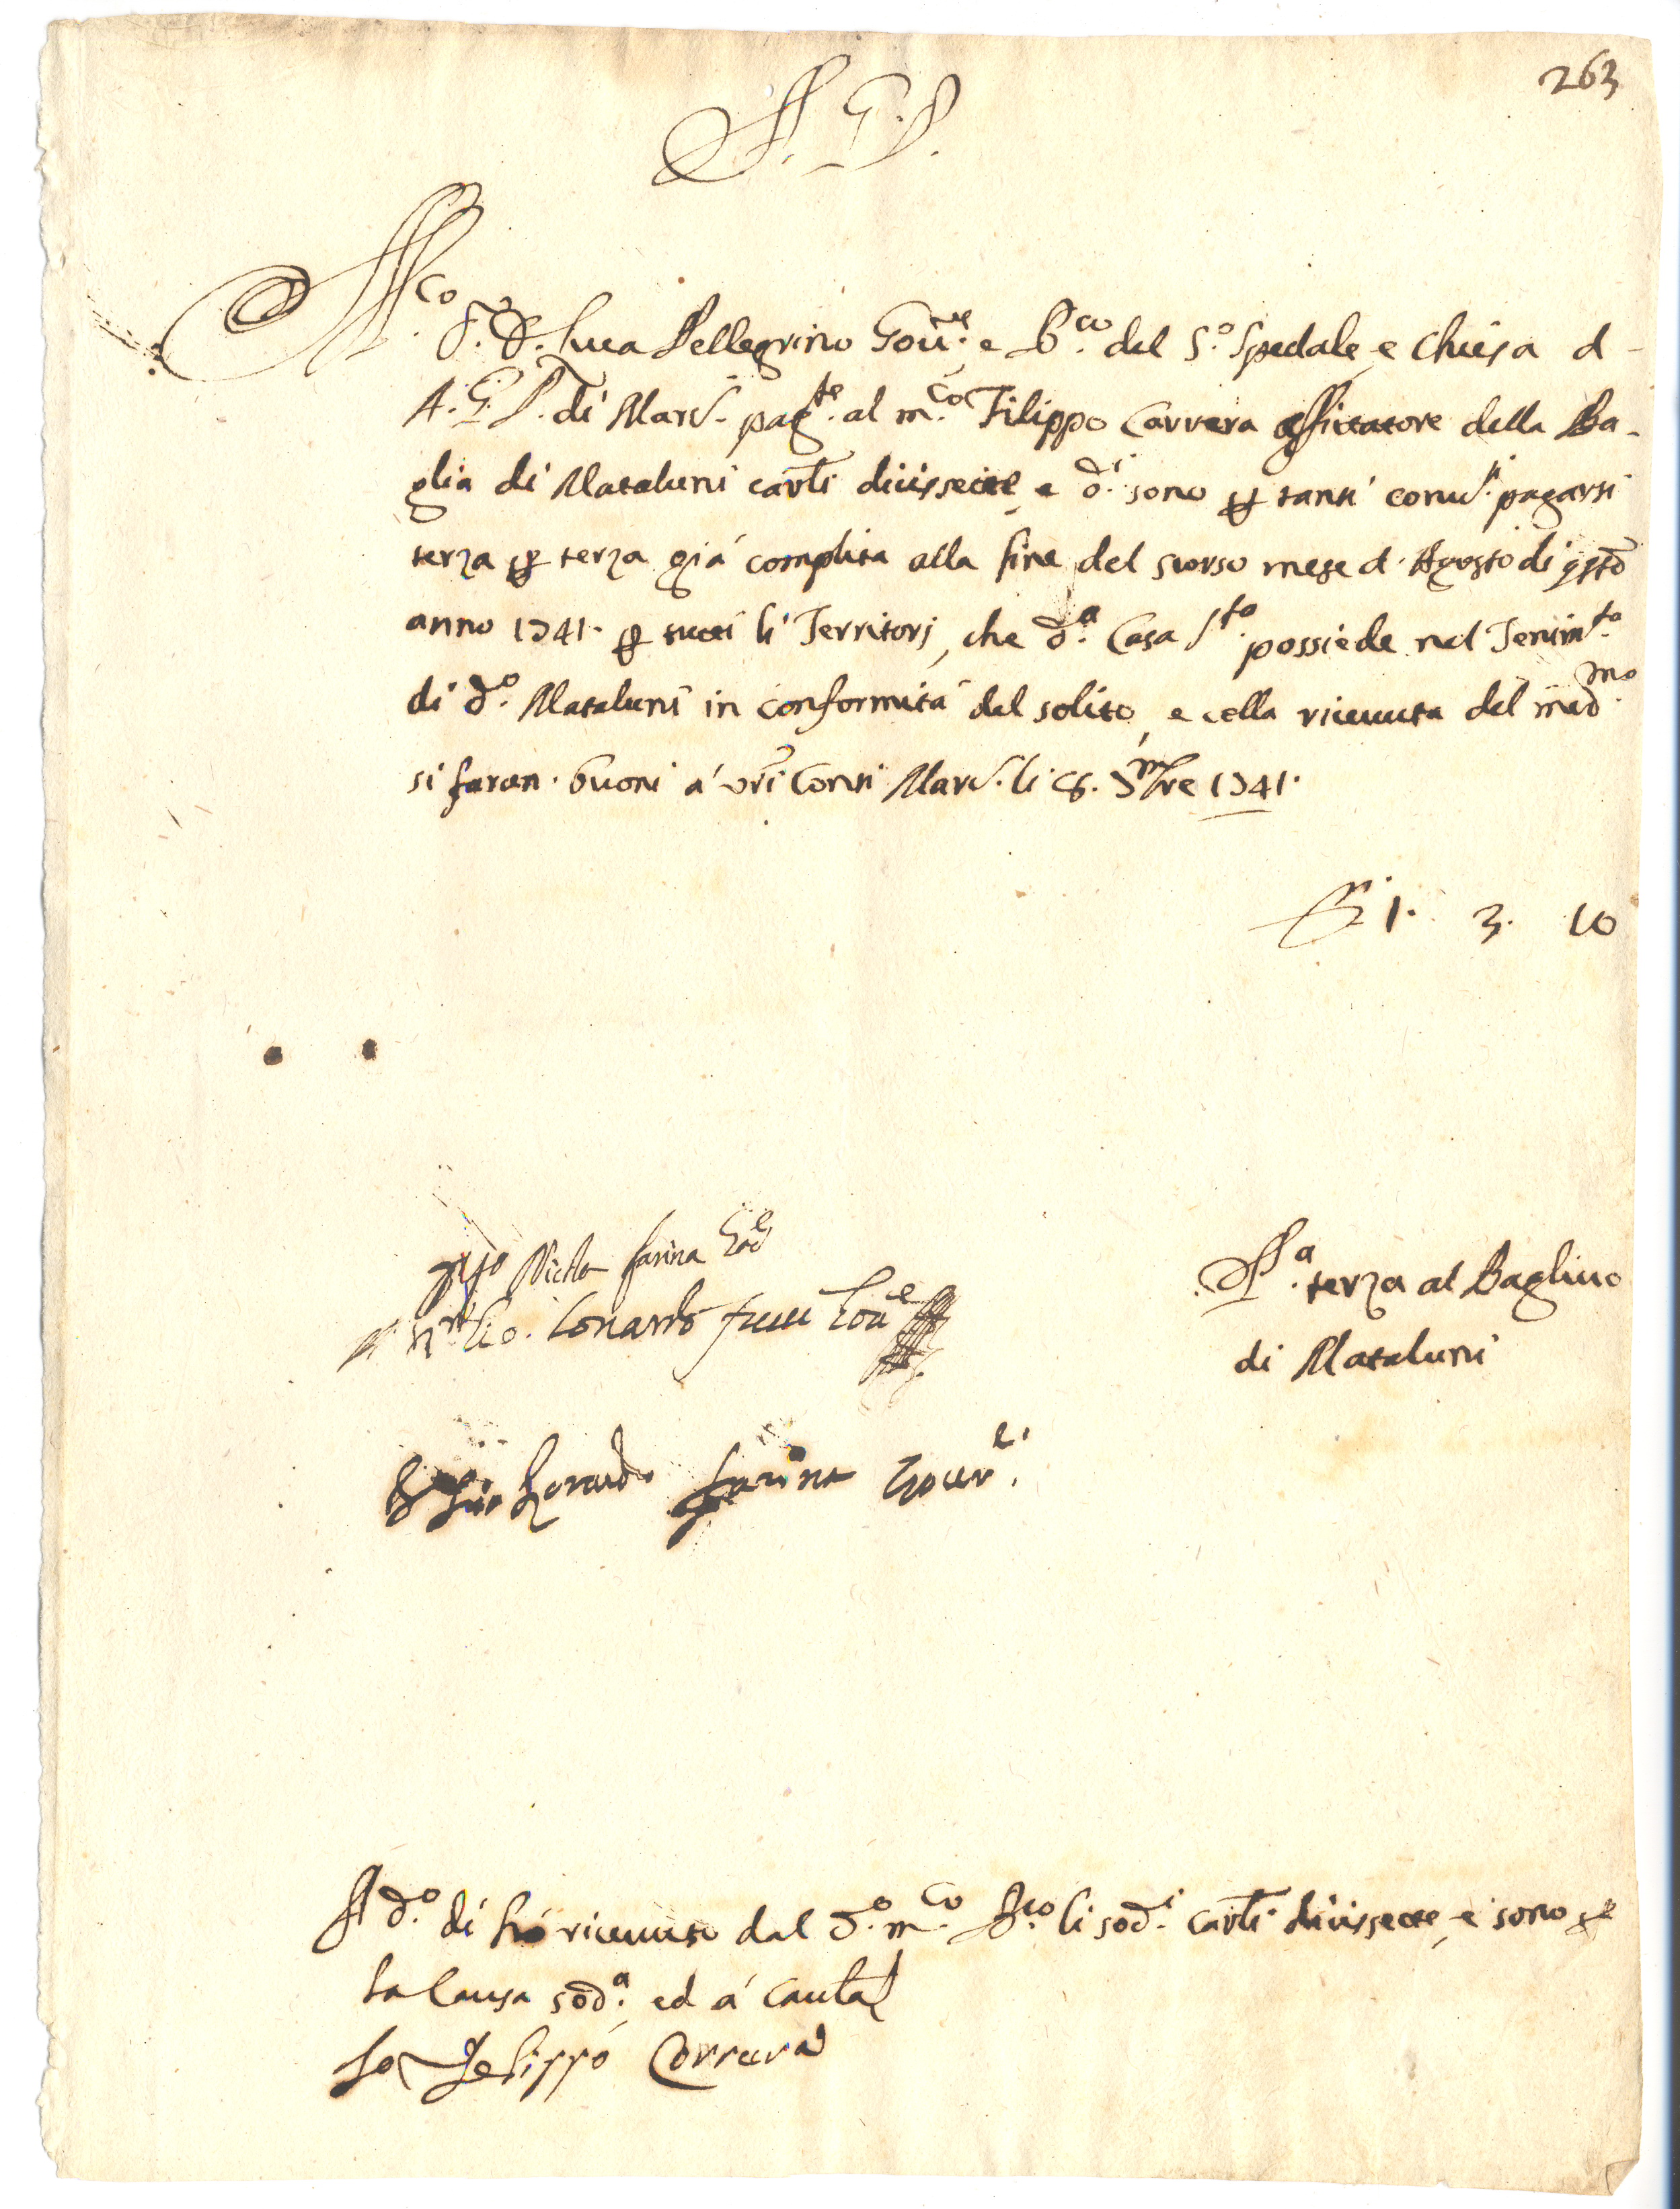 263
A. G. P.
M.co S.r D. Luca Pellegrino Gov.re e B.co del S.o Spedale, e Chiesa d
A. G. P. di Mard. pag.te al m.co Filippo Carrera affittatore della Ba-
glia di Mataluni carl.i diecissette, e d.i sono per tanti conv.ti pagarsi
terza per terza già complita alla fine del scorso mese d. Agosto di q.sto
anno 1741. per tutti li Territorj, che d.a Casa S.ta possiede nel Tenim.to
di d.o Mataluni in conformità del solito, e colla ricevuta del med.mo
si faran. buoni á v.ri Conti Mard. li 8. 7mbre 1741.
1. 3. 10
Nicola farina Gov.e
Lonardo Gov.e
P.a terza al Baglivo
di Mataluni
farina Gover.e
A d.o dì hò ricevuto dal d.o m.co B.co li sod.i carl.i diecissette, e sono per
la Causa sod.a ed á cautela
Io Felippo Carrera